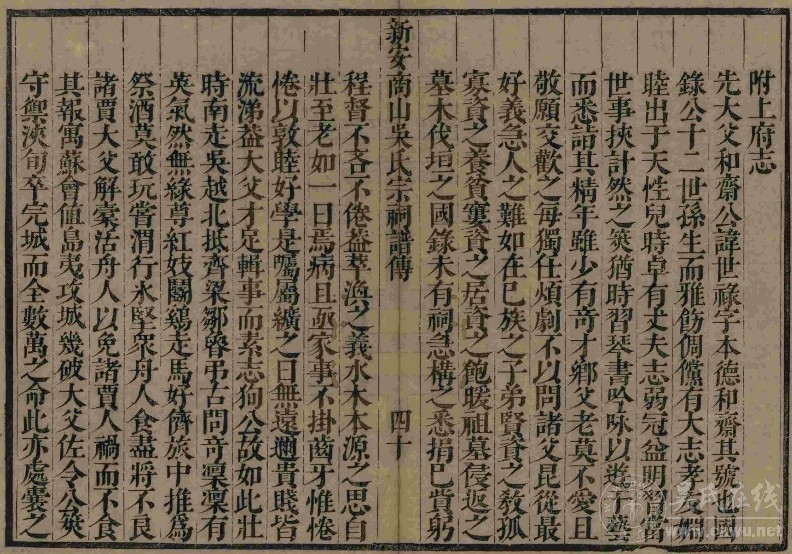 附上府志
先大父和齋公諱世祿字本德和齋其號也國
錄公十二世孫生而雅飭倜儻有大志孝友婣
睦出于天性兒時卓有丈夫志弱冠益明習當
世事挾計然之筴猶時習琴書吟咏以遊于藝
而悉詣其精年雖少有奇才鄉父老莫不愛且
敬願交歡之每獨任煩劇不以問諸父昆從最
好義急人之難如在已族之子弟賢資之教孤
寡資之養貧窶資之居資之飽暖祖墓侵返之
墓木伐垣之國錄未有祠急構之悉捐已貲躬
新安商山吳氏宗祠譜傳
四十
程督不吝不倦蓋萃渙之義水木本源之思自
壯至老如一日焉病且亟家事不掛齒牙惟惓
惓以敦睦好學是囑屬纊之日無遠邇貴賤皆
流涕蓋大父才足輯事而素志狥公故如此壯
時南走吳越北抵齊梁鄒魯弔古問奇凜凜有
英氣然無緣草紅妓鬭鷄走馬好儕旅中推為
祭酒莫敢玩嘗渭行氷堅衆舟人食盡將不良
諸賈大父解橐活舟人以免諸賈人禍而不食
其報寓蘇會値島夷攻城幾破大父佐令公
守禦浹旬卒完城而全數萬之命此亦處囊之
吳氏在线